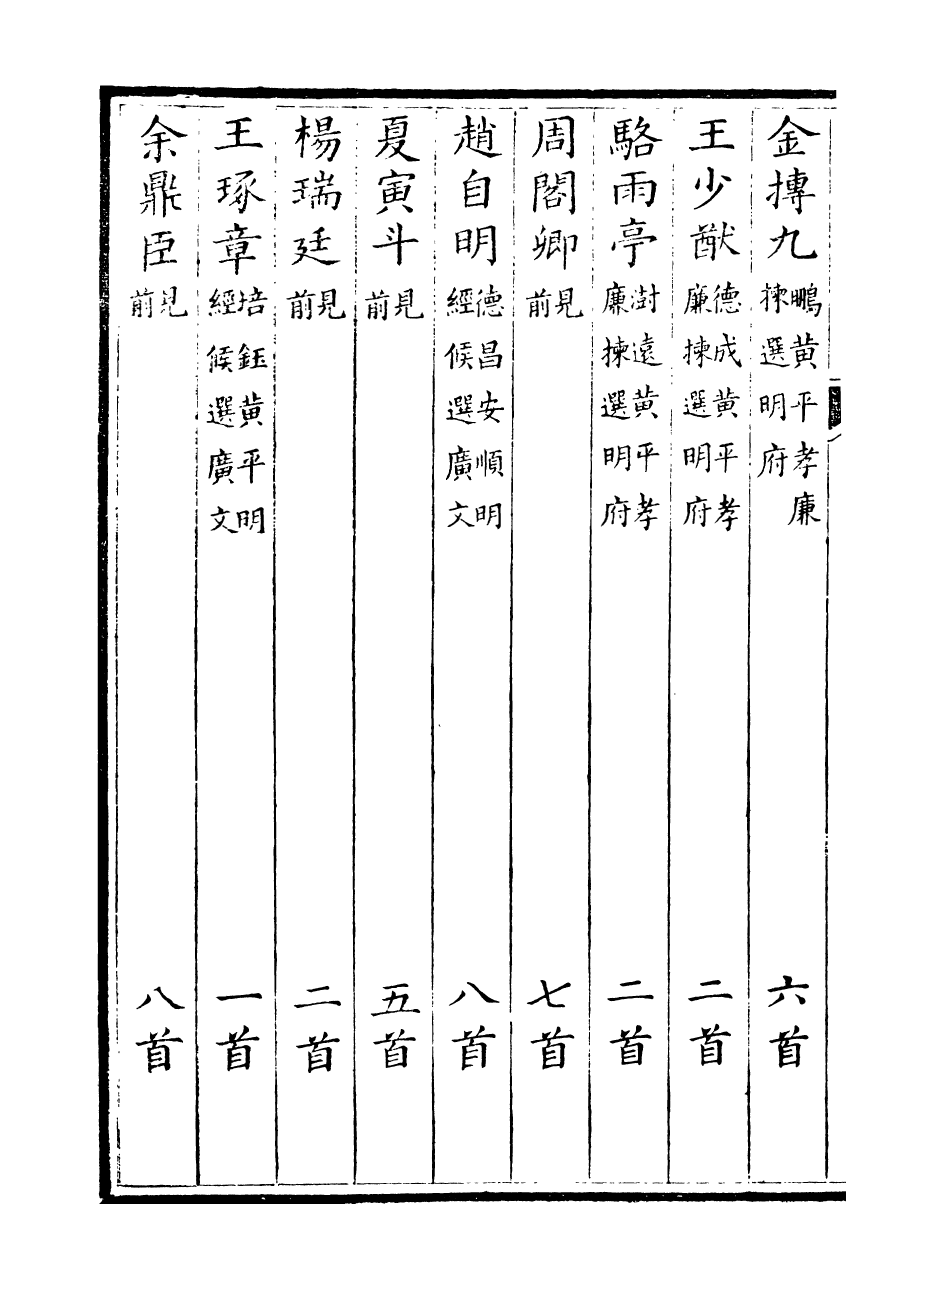 金摶九 鵬黄平孝廉揀選明府 六首
王少猷 德成黄平孝廉揀選明府 二首
駱雨亭 澍遠黄平孝廉揀選明府 二首
周閣卿 見前 七首
趙自明 德昌安順明經候選廣文 八首
夏寅斗 見前 五首
楊瑞廷 見前 二首
王琢章 培鈺黄平明經候選廣文 一首
余鼎臣 見前 八首